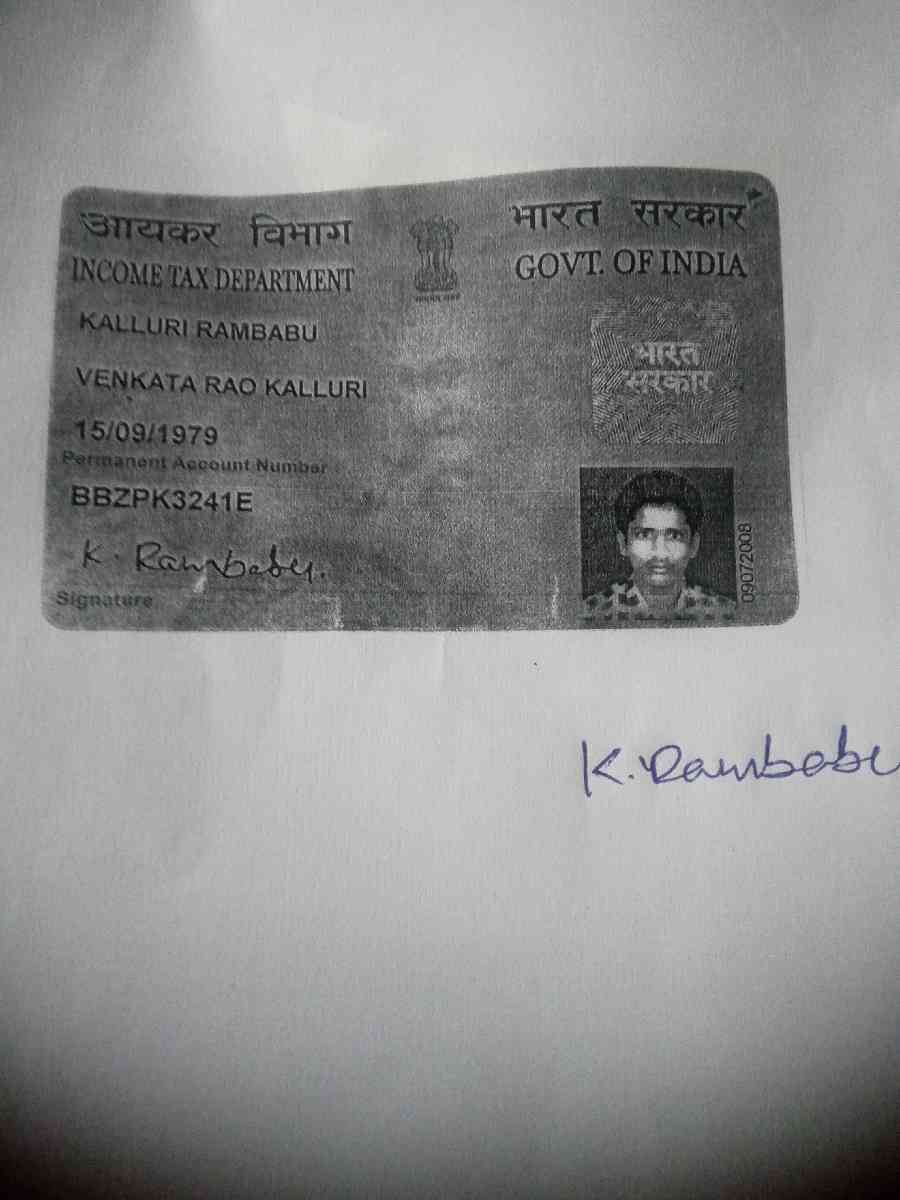 आयकर विभाग
INCOME TAX DEPARTMENT
भारत सरकार
GOVT. OF INDIA
KALLURI RAMBABU
VENKATA RAO KALLURI
15/09/1979
Permanent Account Number
BBZPK3241E
K. Rambabu.
Signature
भारत
सरकार
09072008
K. Rambabu